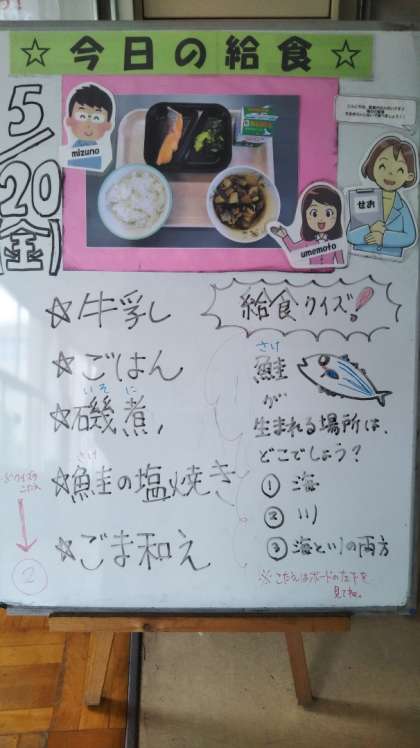 ☆今日の給食☆
5/20(金)
mizuno
せお
umemoto
☆牛乳
☆ごはん
いそ に
☆磯煮
さけ
☆鮭の塩焼き
☆ごま和え
給食クイズ!
さけ
鮭
が
生まれる場所は、
どこでしょう?
① 海
② 川
③ 海と川の両方
※こたえはボードの左下を
見てね。
②